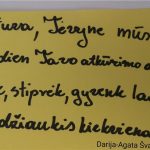 Tėvyne mūs
dien Tavo atkūrimo d
, stiprėk, gyvenk la
džiaukis kiekviena
Darija-Agata Šva